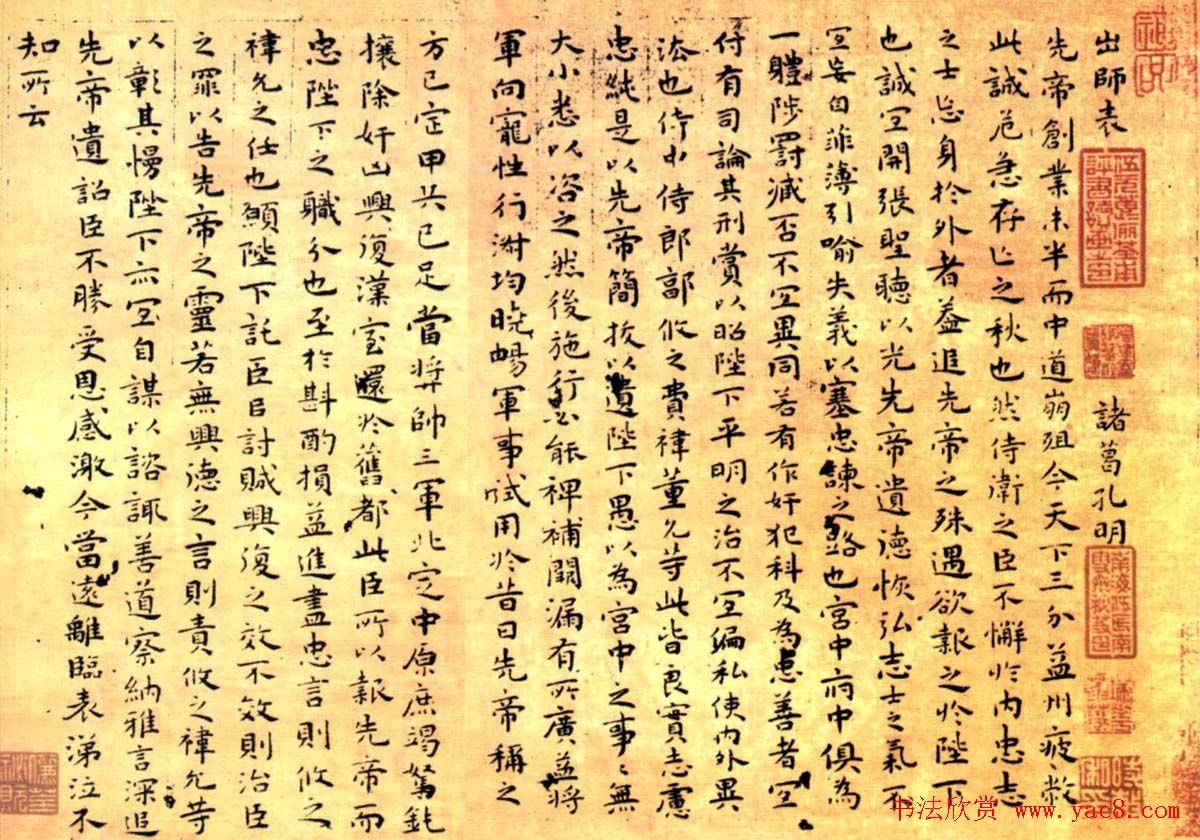 出師表 諸葛孔明
先帝創業未半而中道崩殂今天下三分益州疲敝
此誠危急存亡之秋也然侍衛之臣不懈於内忠志
之士忘身於外者蓋追先帝之殊遇欲報之於陛下
也誠宜開張聖聽以光先帝遺德恢弘志士之氣不
宜妄自菲薄引喻失義以塞忠諫之路也宮中府中俱為
一體陟罰臧否不宜異同若有作奸犯科及為忠善者宜
付有司論其刑賞以昭陛下平明之治不宜偏私使内外異
法也侍中侍郎郭攸之費禕董允等此皆良實志慮
忠純是以先帝簡拔以遺陛下愚以為宮中之事〻無
大小悉以咨之然後施行必能裨補闕漏有所廣益將
軍向寵性行淑均曉暢軍事試用於昔日先帝稱之
方已定甲兵已足當獎帥三軍北定中原庶竭駑鈍
攘除奸凶興復漢室還於舊都此臣所以報先帝而
忠陛下之職分也至於斟酌損益進盡忠言則攸之
禕允之任也願陛下託臣㠯討賊興復之效不效則治臣
之罪以告先帝之靈若無興德之言則責攸之禕允等
以彰其慢陛下亦宜自謀以諮諏善道察納雅言深追
先帝遺詔臣不勝受恩感激今當遠離臨表涕泣不
知所云
书法欣赏 www.yac8.com